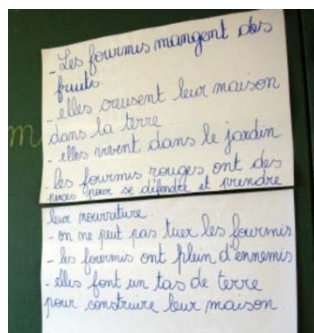 - Les fourmis mangent des
fruits
- elles creusent leur maison
dans la terre
- elles vivent dans le jardin
- les fourmis rouges ont des
pinces pour se défendre et prendre
leur nourriture.
- on ne peut pas tuer les fourmis
- les fourmis ont plein d'ennemis
- elles font un tas de terre
pour construire leur maison
m